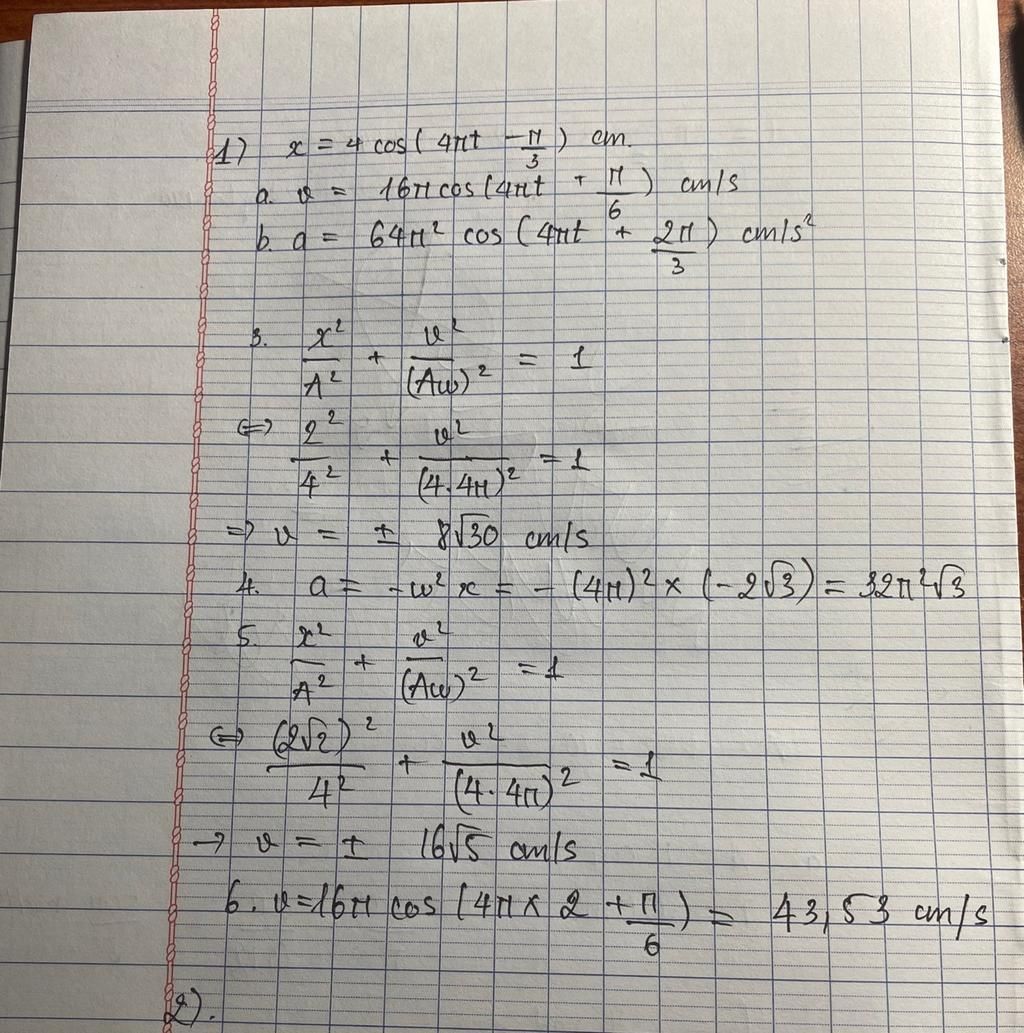 1) x = 4 cos(4πt - π/3) cm.
a. v = 16π cos(4πt + π/6) cm/s
b. a = 64π² cos(4πt + 2π/3) cm/s²
3. x²/A² + v²/(Aω)² = 1
⇔ 2²/4² + v²/(4.4π)² = 1
⇒ v = ± 8√30 cm/s
4. a = -ω² x = - (4π)² × (-2√3) = 32π²√3
5. x²/A² + v²/(Aω)² = 1
⇔ (2√2)²/4² + v²/(4.4π)² = 1
→ v = ± 16√5 cm/s
6. v = 16π cos(4π × 2 + π/6) = 43,53 cm/s
2).